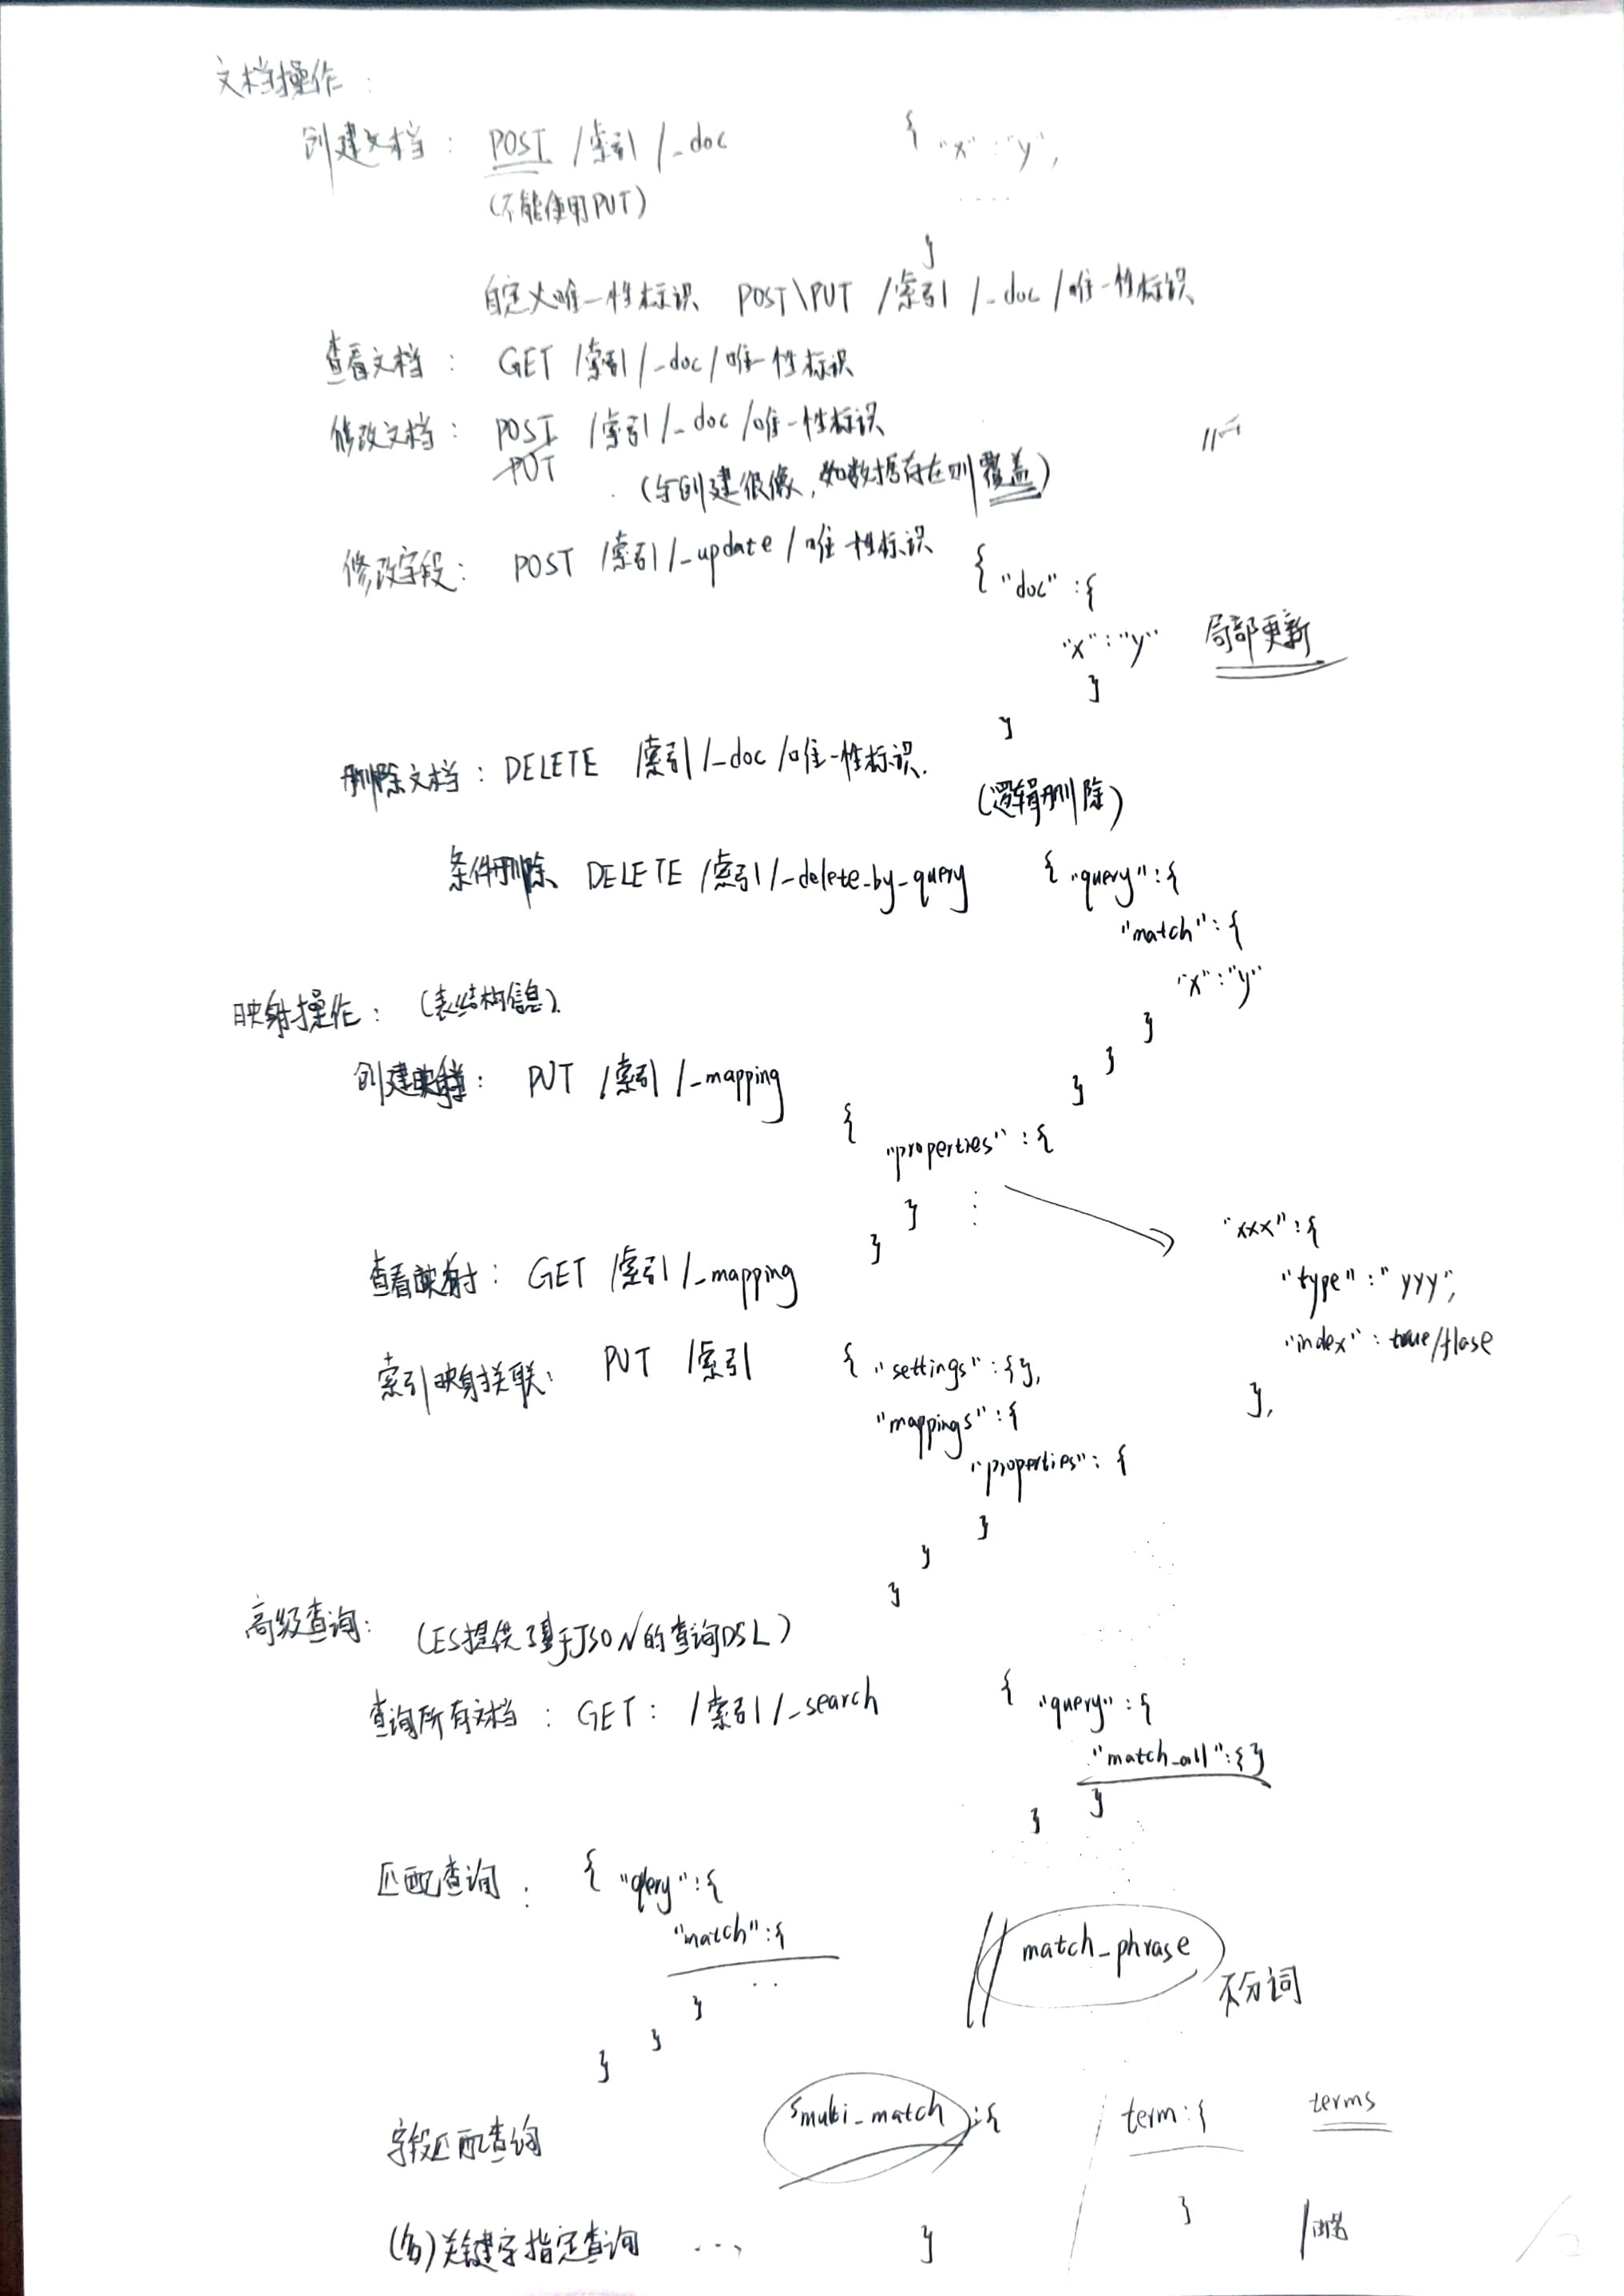 文档操作：
创建文档： POST /索引 /_doc { "x" : "y",
(不能使用PUT) ....
}
自定义唯一性标识 POST\PUT /索引 /_doc /唯一性标识
查看文档： GET /索引/_doc/唯一性标识
修改文档： POST /索引/_doc/唯一性标识
PUT (与创建很像,如数据存在则覆盖)
修改字段： POST /索引/_update/唯一性标识 { "doc" :{
"x" : "y" 局部更新
}
}
删除文档：DELETE /索引/_doc/唯一性标识.
(逻辑删除)
条件删除 DELETE /索引/_delete_by_query { "query" :{
"match" : {
"x" : "y"
}
}
}
映射操作： (表结构信息).
创建映射： PUT /索引/_mapping
{
"properties" : {
}
}
"xxx" : {
"type" : "yyy",
"index" : true/flase
},
查看映射： GET /索引/_mapping
索引映射关联： PUT /索引 { "settings" : {},
"mappings" : {
"properties" : {
}
}
}
高级查询： (ES提供了基于JSON的查询DSL)
查询所有文档 : GET : /索引/_search { "query" : {
"match_all" : {}
}
}
匹配查询 : { "query" : {
"match" : { match_phrase
.. 不分词
}
}
}
字段匹配查询 multi_match :{ term:{ terms
(多)关键字指定查询 ..., } }